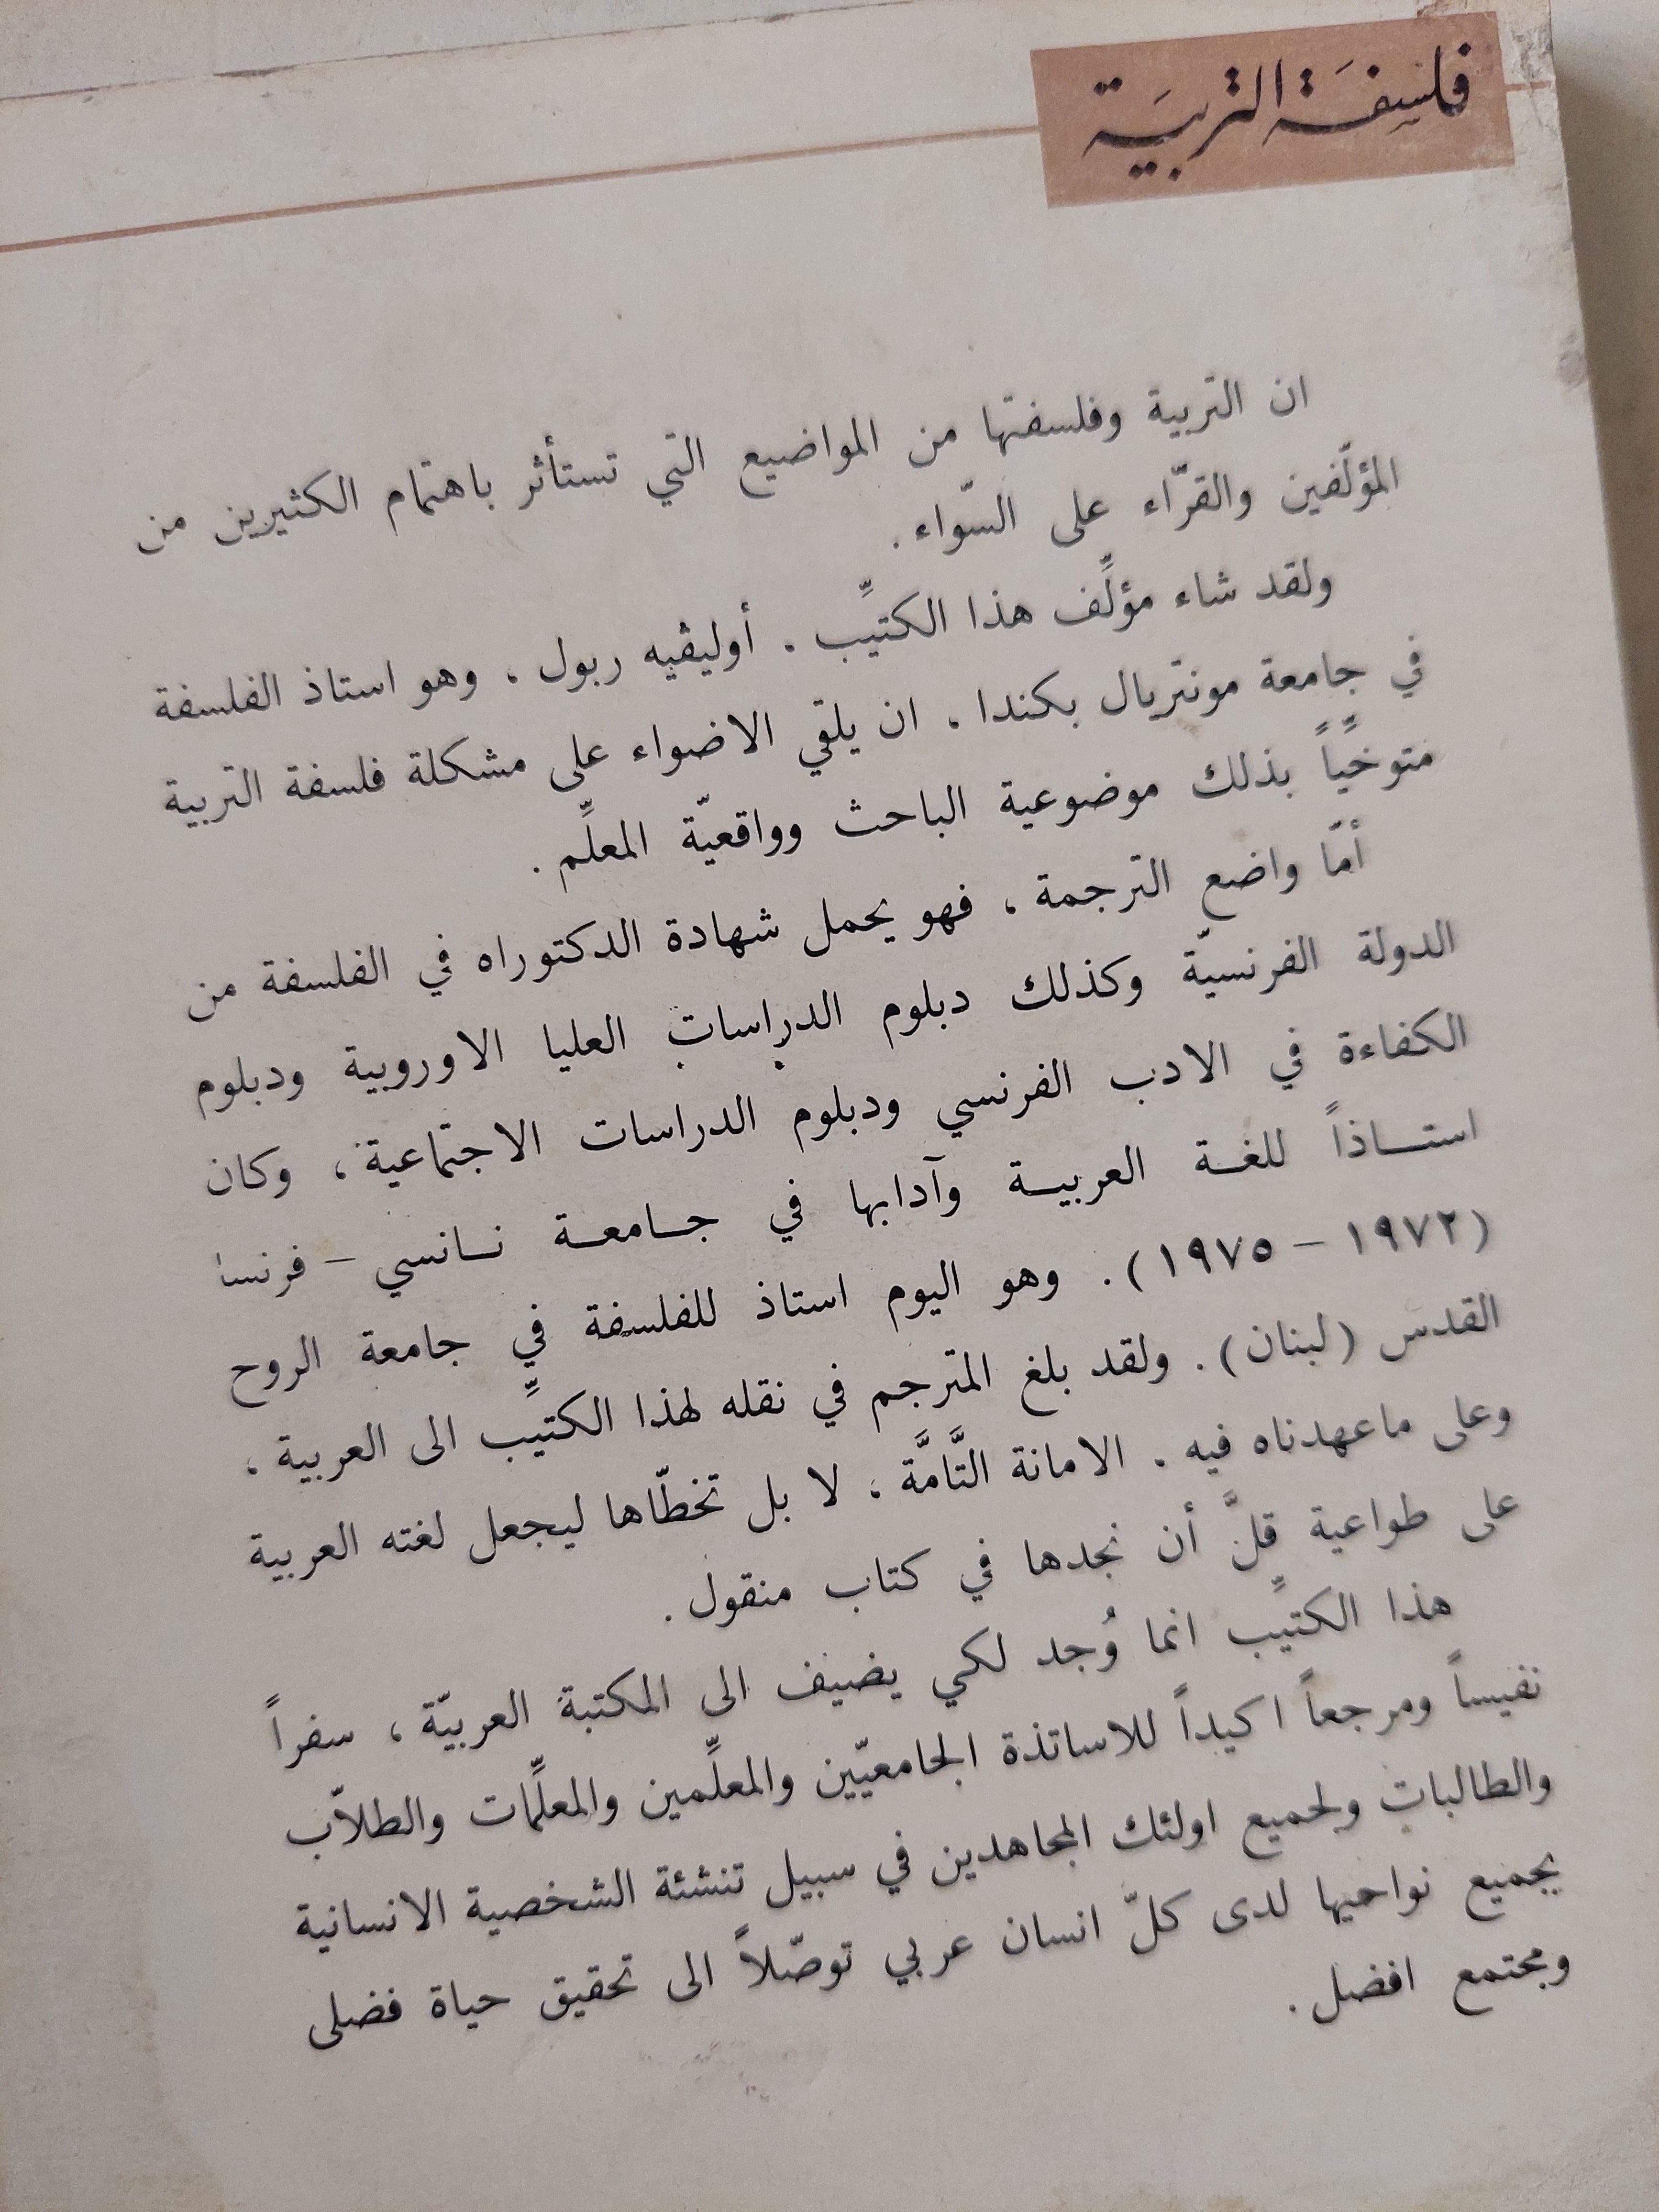 فلسفَة التربيَة
ان التربية وفلسفتها من المواضيع التي تستأثر باهتمام الكثيرين من
المؤلّفين والقرّاء على السّواء .
ولقد شاء مؤلِّف هذا الكتيِّب ، أوليڤيه ربول ، وهو استاذ الفلسفة
في جامعة مونتريال بكندا ، ان يلقي الاضواء على مشكلة فلسفة التربية
متوخِّياً بذلك موضوعية الباحث وواقعيّة المعلِّم .
أمّا واضع الترجمة ، فهو يحمل شهادة الدكتوراه في الفلسفة من
الدولة الفرنسيّة وكذلك دبلوم الدراسات العليا الاوروبية ودبلوم
الكفاءة في الادب الفرنسي ودبلوم الدراسات الاجتماعية ، وكان
استاذاً للغة العربية وآدابها في جامعة نانسي – فرنسا
(١٩٧٢ – ١٩٧٥) . وهو اليوم استاذ للفلسفة في جامعة الروح
القدس (لبنان) . ولقد بلغ المترجم في نقله لهذا الكتيِّب الى العربية ،
وعلى ماعهدناه فيه ، الامانة التَّامَّة ، لا بل تخطّاها ليجعل لغته العربية
على طواعية قلَّ أن نجدها في كتاب منقول .
هذا الكتيِّب انما وُجد لكي يضيف الى المكتبة العربيّة ، سفراً
نفيساً ومرجعاً اكيداً للاساتذة الجامعيّين والمعلِّمين والمعلِّمات والطلاّب
والطالبات ولجميع اولئك المجاهدين في سبيل تنشئة الشخصية الانسانية
بجميع نواحيها لدى كلّ انسان عربي توصّلاً الى تحقيق حياة فضلى
ومجتمع افضل .